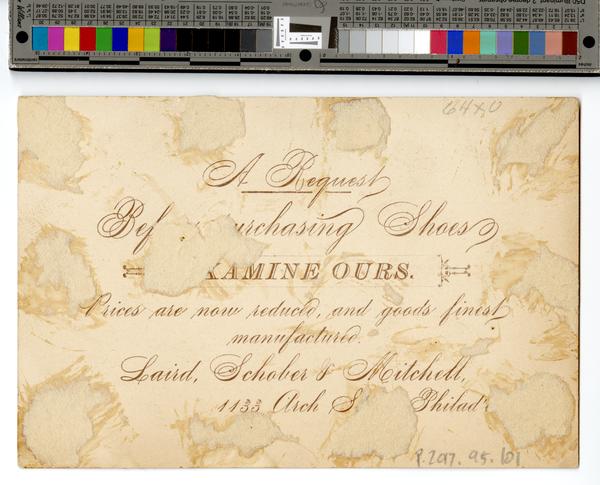 64x0
A Request
Bef urchasing Shoes
XAMINE OURS.
Prices are now reduced, and goods finest
manufactured.
Laird, Schober & Mitchell,
1133 Arch S Philad
P.2017.95.101